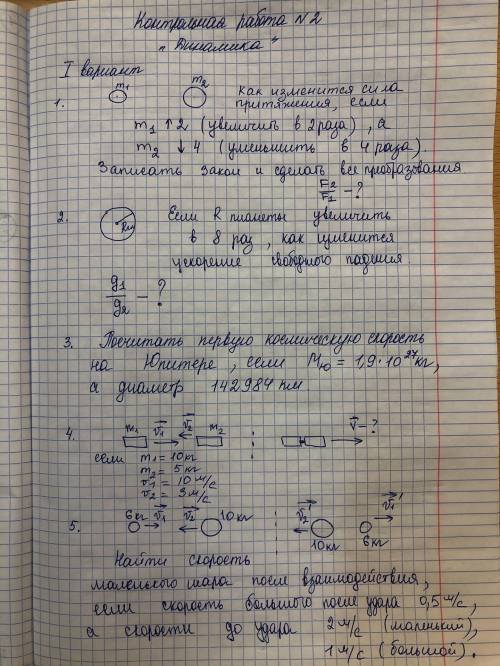 Контрольная работа №2
"Динамика"
I вариант
1. m₁ m₂ как изменится сила
притяжения, если
m₁ ↑ 2 (увеличить в 2 раза), а
m₂ ↓ 4 (уменьшить в 4 раза).
Записать закон и сделать все преобразования
F₂/F₁ - ?
2. Rпл Если R планеты увеличить
в 8 раз, как изменится
ускорение свободного падения.
g₁/g₂ - ?
3. Посчитать первую космическую скорость
на Юпитере, если Mю = 1,9·10²⁷кг,
а диаметр 142984 км
4. m₁ v₁ v₂ m₂ v - ?
если m₁ = 10кг
m₂ = 5 кг
v₁ = 10 м/с
v₂ = 3 м/с
5. 6кг v₁ v₂ 10кг v₂' 10кг v₁' 6кг
Найти скорость
маленького шара после взаимодействия,
если скорость большого после удара 0,5 м/с,
а скорости до удара 2 м/с (маленький),
1 м/с (большой).